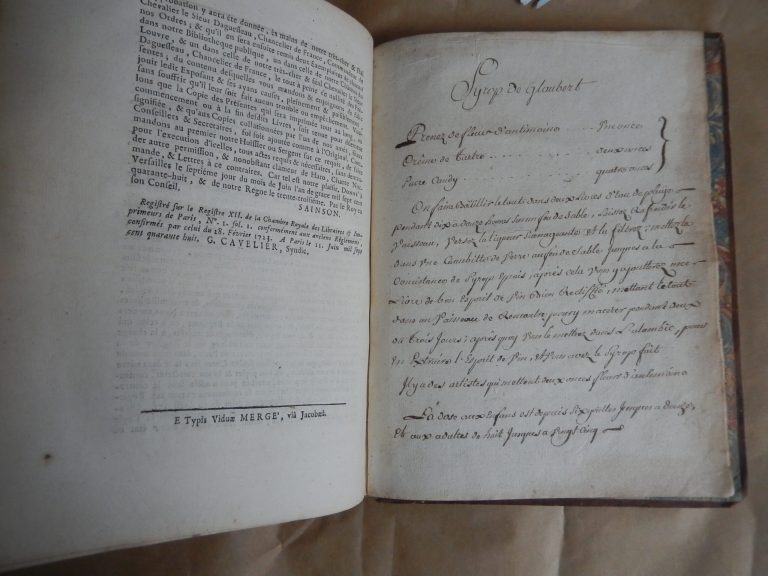 probation y aura été donnée, ès mains de notre très-cher & féal
Chevalier le Sieur Daguesseau, Chancelier de France, Comman
nos Ordres; & qu'il en sera ensuite remis deux Exemplaires dans
notre Bibliothèque publique, un dans celle de notre Château du
Louvre, & un dans celle de notre très-cher & féal Chevalier le Sieur
Daguesseau, Chancelier de France, le tout à peine de nullité des Pré-
sentes; du contenu desquelles vous mandons & enjoignons de faire
jouir ledit Exposant & ses ayans causes, pleinement & paisiblement,
sans souffrir qu'il leur soit fait aucun trouble ou empêchement. Voulons
que la Copie des Présentes qui sera imprimée tout au long, au
commencement ou à la fin desdits Livres, soit tenue pour dûement
signifiée, & qu'aux Copies collationnées par l'un de nos amés & féaux
Conseillers & Secretaires, foi soit ajoutée comme à l'Original. Com-
mandons au premier notre Huissier ou Sergent sur ce requis, de faire
pour l'execution d'icelles, tous actes requis & nécessaires, sans deman-
der autre permission, & nonobstant clameur de Haro, Charte Nor-
mande, & Lettres à ce contraires. Car tel est notre plaisir. Donné à
Versailles le septiéme jour du mois de Juin l'an de grace mil sept cent
quarante-huit, & de notre Regne le trente-troisiéme. Par le Roy en
son Conseil,
SAINSON.
Registré sur le Registre XII. de la Chambre Royale des Libraires & Im-
primeurs de Paris, N°. 1. fol. 1. conformément aux anciens Réglemens,
confirmés par celui du 28. Février 1723. A Paris le 11. Juin mil sept
cent quarante huit, G. CAVELIER, Syndic.
E Typis Viduæ MERGE', viâ Jacobæâ.
Syrop de Glaubert
Prenez de fleur d'antimoine ... une once
Crême de Tartre ... deux onces
Sucre Candy ... quatre onces
On faire bouillir le tout dans deux Livres d'Eau de
pendant dix à douze heures sur un feu de Sable, Laissez Refroidir le
Vaisseau, Versez la liqueur Surnageante et la filtrez; mettez la
dans une de Verre au feu de Sable Jusques à la
Consistance de Syrop Epais, après cela Vous y ajouterez une
Livre de bon Esprit de Vin bien Rectifié, mettant le tout
dans un Vaisseau de Rencontre pour y macerer pendant deux
ou trois Jours; après quoy Vous le mettrez dans L'alambic, pour
en Extraire l'Esprit de Vin, et Vous avez le Syrop fait
Il y a des artistes qui mettent deux onces fleurs d'antimoine
La dose aux Enfans est depuis Six gouttes Jusques à Douze,
Et aux adultes de huit Jusques a Vingt Cinq